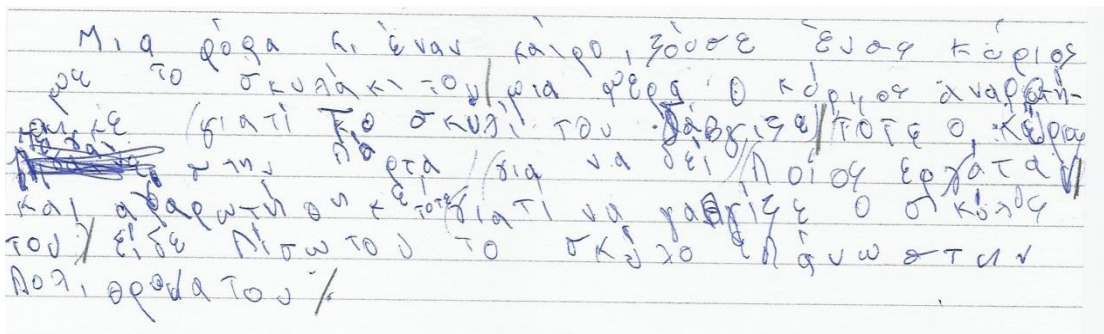 Μια φόρα κι έναν καίρο, ζόυσε ένας κύριος
με το σκυλάκι του/μια μέρα ο κύριος άναρωτή-
θηκε /γιατί το σκυλί του γάβγιζε/τότε ο κύριος
στην πόρτα/για να δεί/ποίος ερχάταν/
και αναρωτήθηκε τότε/γιατί να γαβγίζε ο σκύλος
του/είδε πίσω του το σκύλο επάνω στην
πολιθρονα του/.